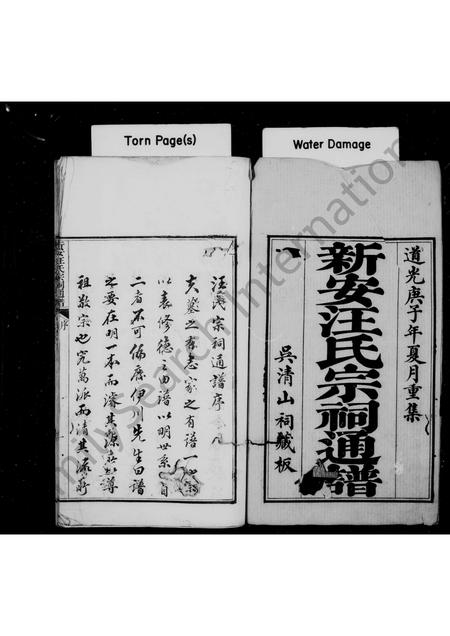 Torn Page(s)
Water Damage
道光庚子年夏月重集
新安汪氏宗祠通譜
吳清山祠藏板
汪氏宗祠通譜序
夫墓之有志家之有譜一
以表修德之由譜以明世系自
二者不可偏廢伊川先生曰譜
之要在明一本而濬其源
祖敬宗也究萬派而清其流
新安汪氏宗祠通譜
序
Family Search International